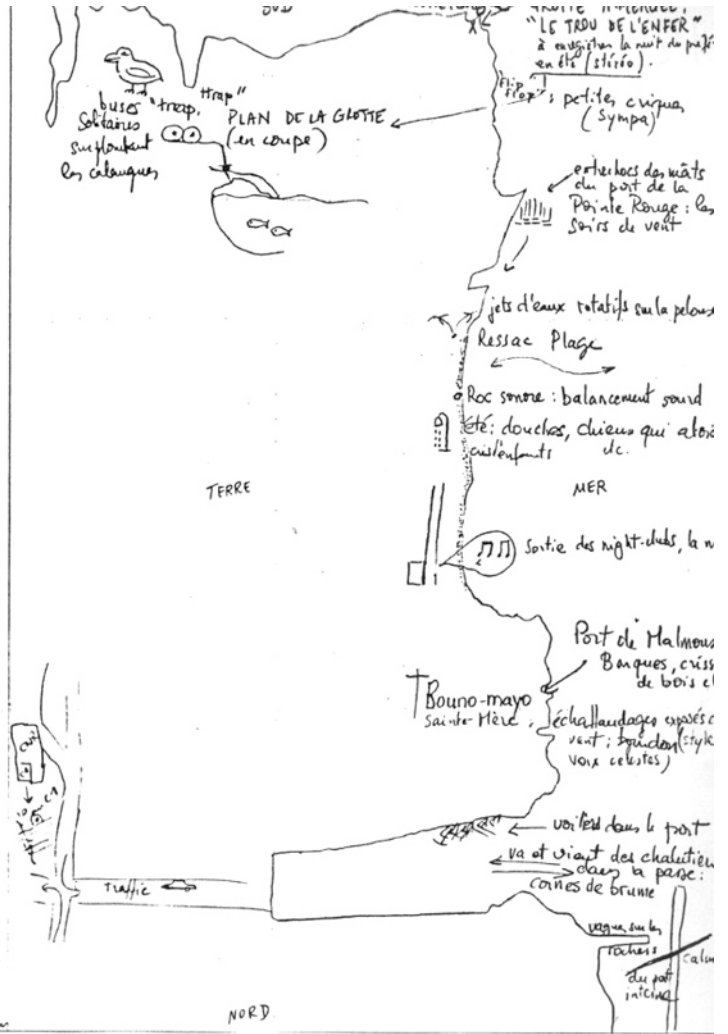 SUD
"LE TROU DE L'ENFER"
à enregistrer la nuit de préf
en été (stéréo).
"flip
flop": petites criques
(Sympa)
buses "treap,
ttrap"
Solitaires
surplombant
les calanques
PLAN DE LA GROTTE
(en coupe)
entrechocs des mâts
du port de la
Pointe Rouge : les
soirs de vent
jets d'eaux rotatifs sur la pelouse
Ressac Plage
Roc sonore : balancement sourd
été : douches, chiens qui aboie
cris d'enfants etc.
TERRE
MER
Sortie des night-clubs, la n
Port de Malmous
Barques, criss
de bois e
Bouno-mayo
Sainte-Mère :
échaffaudages exposés a
vent : bourdon (style
voix celestes)
voiliers dans le port
va et vient des chalutier
dans la passe :
cornes de brume
Traffic
vagues sur les
rochers
calm
du port
NORD